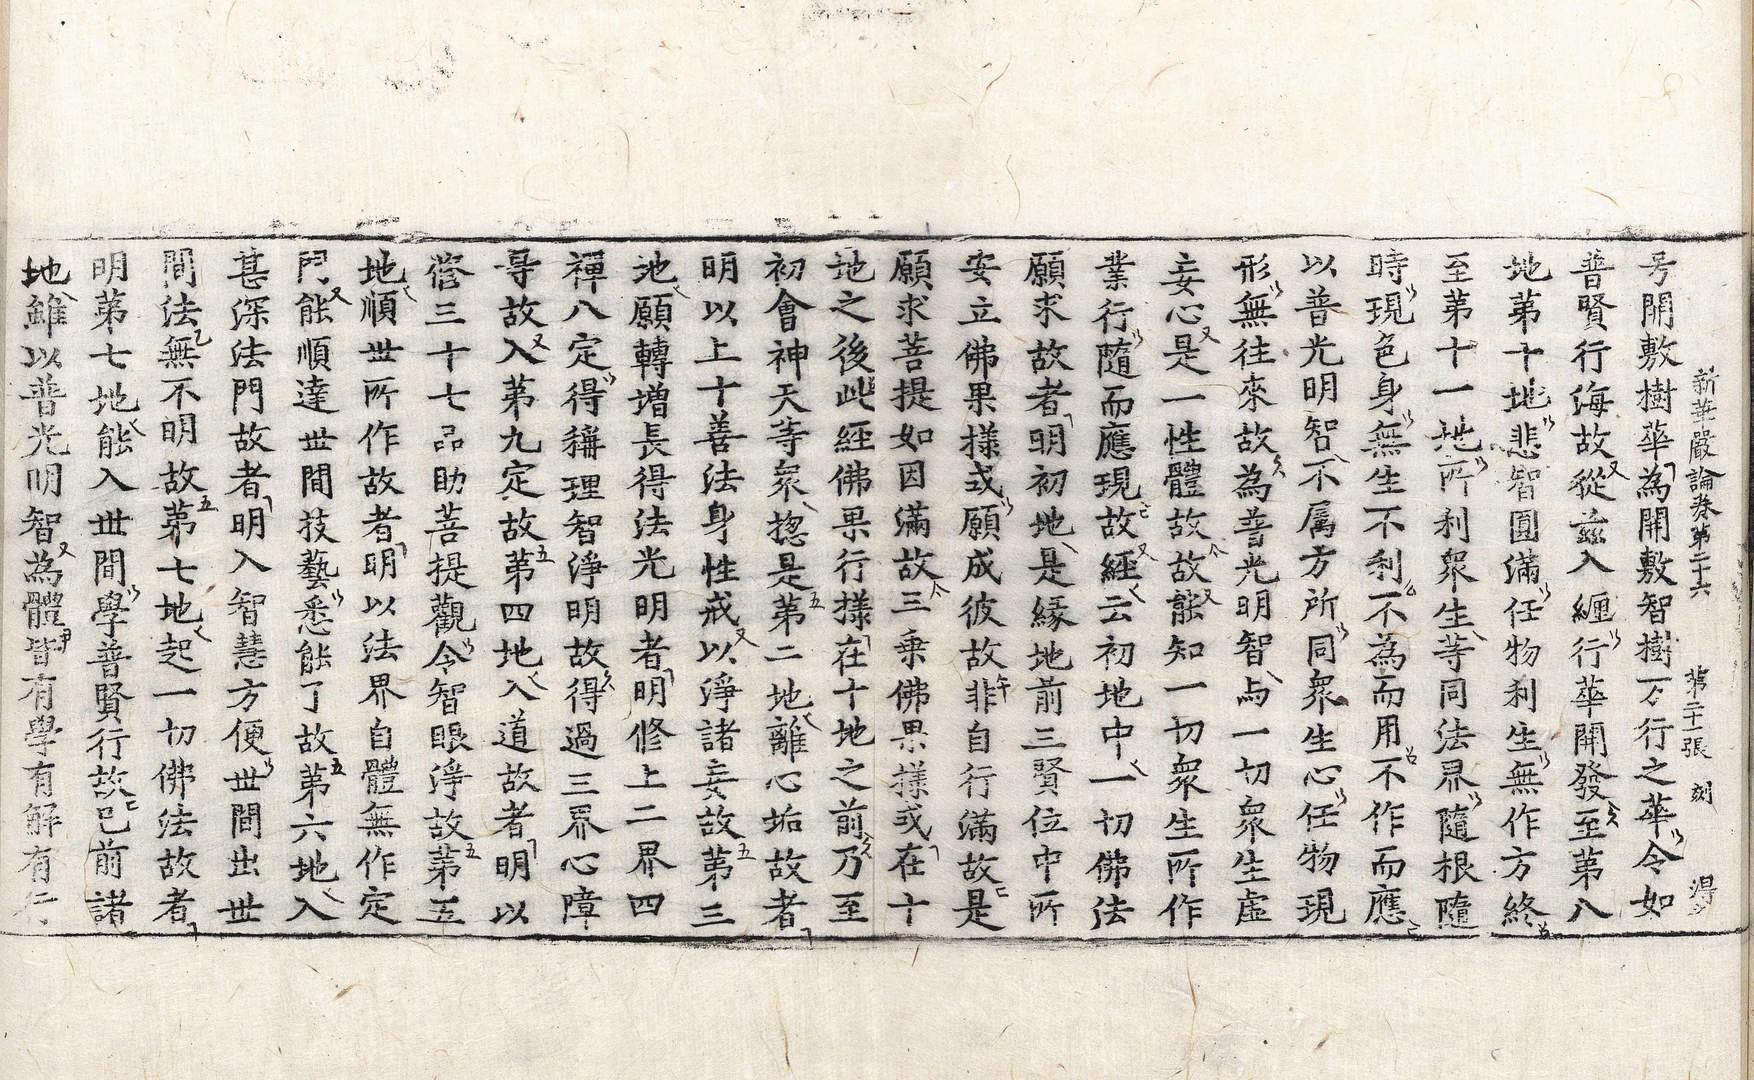 新華嚴論卷第二十六 第二十一張 刻 得
号開敷樹華為開敷智樹万行之華令如
普賢行海故從玆入纏行華開發至第八
地第十地悲智圓滿任物利生無作方終
至第十一地所利衆生等同法界隨根隨
時現色身無生不利不為而用不作而應
以普光明智不属方所同衆生心任物現
形無往來故為普光明智与一切衆生虛
妄心是一性體故故能知一切衆生所作
業行隨而應現故經云初地中一切佛法
願求故者明初地是緣地前三賢位中所
安立佛果樣或願成彼故非自行滿故是
願求菩提如因滿故三乗佛果樣或在十
地之後此經佛果行樣在十地之前乃至
初會神天等衆揔是第二地離心垢故者
明以上十善法身性戒以淨諸妄故第三
地願轉增長得法光明者明修上二界四
禪八定得稱理智淨明故得過三界心障
㝵故入第九定故第四地入道故者明以
觀三十七品助菩提觀令智眼淨故第五
地順世所作故者明以法界自體無作定
門能順達世間技藝悉能了故第六地入
甚深法門故者明入智慧方便世間出世
間法無不明故第七地起一切佛法故者
明第七地能入世間學普賢行故已前諸
地雖以普光明智為體皆有學有解有行